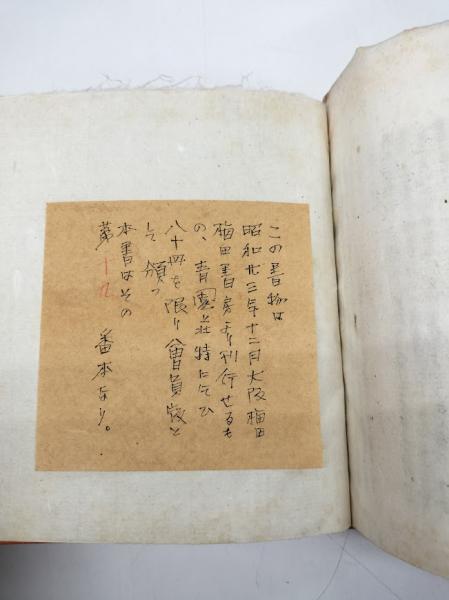 この書物は
昭和廿三年十二月大阪梅田
梅田書房より刊行せるも
の、青園荘特に乞ひ
八十冊を限り會員版と
して頒つ
本書はその
第十九 番本なり。